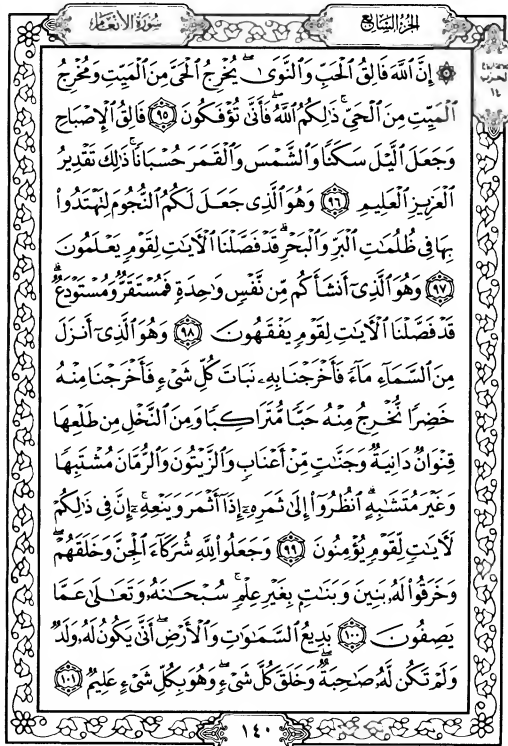 سُورَةُ الأَنعَام
الجزء السابع
الحزب
١٤
۞ إِنَّ ٱللَّهَ فَالِقُ ٱلْحَبِّ وَٱلنَّوَىٰ ۖ يُخْرِجُ ٱلْحَىَّ مِنَ ٱلْمَيِّتِ وَمُخْرِجُ
ٱلْمَيِّتِ مِنَ ٱلْحَىِّ ۚ ذَٰلِكُمُ ٱللَّهُ ۖ فَأَنَّىٰ تُؤْفَكُونَ ٩٥ فَالِقُ ٱلْإِصْبَاحِ
وَجَعَلَ ٱلَّيْلَ سَكَنًا وَٱلشَّمْسَ وَٱلْقَمَرَ حُسْبَانًا ۚ ذَٰلِكَ تَقْدِيرُ
ٱلْعَزِيزِ ٱلْعَلِيمِ ٩٦ وَهُوَ ٱلَّذِى جَعَلَ لَكُمُ ٱلنُّجُومَ لِتَهْتَدُوا۟
بِهَا فِى ظُلُمَٰتِ ٱلْبَرِّ وَٱلْبَحْرِ ۗ قَدْ فَصَّلْنَا ٱلْءَايَٰتِ لِقَوْمٍ يَعْلَمُونَ
٩٧ وَهُوَ ٱلَّذِىٓ أَنشَأَكُم مِّن نَّفْسٍ وَٰحِدَةٍ فَمُسْتَقَرٌّ وَمُسْتَوْدَعٌ ۗ
قَدْ فَصَّلْنَا ٱلْءَايَٰتِ لِقَوْمٍ يَفْقَهُونَ ٩٨ وَهُوَ ٱلَّذِىٓ أَنزَلَ
مِنَ ٱلسَّمَآءِ مَآءً فَأَخْرَجْنَا بِهِۦ نَبَاتَ كُلِّ شَىْءٍ فَأَخْرَجْنَا مِنْهُ
خَضِرًا نُّخْرِجُ مِنْهُ حَبًّا مُّتَرَاكِبًا وَمِنَ ٱلنَّخْلِ مِن طَلْعِهَا
قِنْوَانٌ دَانِيَةٌ وَجَنَّٰتٍ مِّنْ أَعْنَابٍ وَٱلزَّيْتُونَ وَٱلرُّمَّانَ مُشْتَبِهًا
وَغَيْرَ مُتَشَٰبِهٍ ۗ ٱنظُرُوٓا۟ إِلَىٰ ثَمَرِهِۦٓ إِذَآ أَثْمَرَ وَيَنْعِهِۦٓ ۚ إِنَّ فِى ذَٰلِكُمْ
لَءَايَٰتٍ لِّقَوْمٍ يُؤْمِنُونَ ٩٩ وَجَعَلُوا۟ لِلَّهِ شُرَكَآءَ ٱلْجِنَّ وَخَلَقَهُمْ ۖ
وَخَرَقُوا۟ لَهُۥ بَنِينَ وَبَنَٰتٍۭ بِغَيْرِ عِلْمٍ ۚ سُبْحَٰنَهُۥ وَتَعَٰلَىٰ عَمَّا
يَصِفُونَ ١٠٠ بَدِيعُ ٱلسَّمَٰوَٰتِ وَٱلْأَرْضِ ۖ أَنَّىٰ يَكُونُ لَهُۥ وَلَدٌ
وَلَمْ تَكُن لَّهُۥ صَٰحِبَةٌ ۖ وَخَلَقَ كُلَّ شَىْءٍ ۖ وَهُوَ بِكُلِّ شَىْءٍ عَلِيمٌ ١٠١
١٤٠